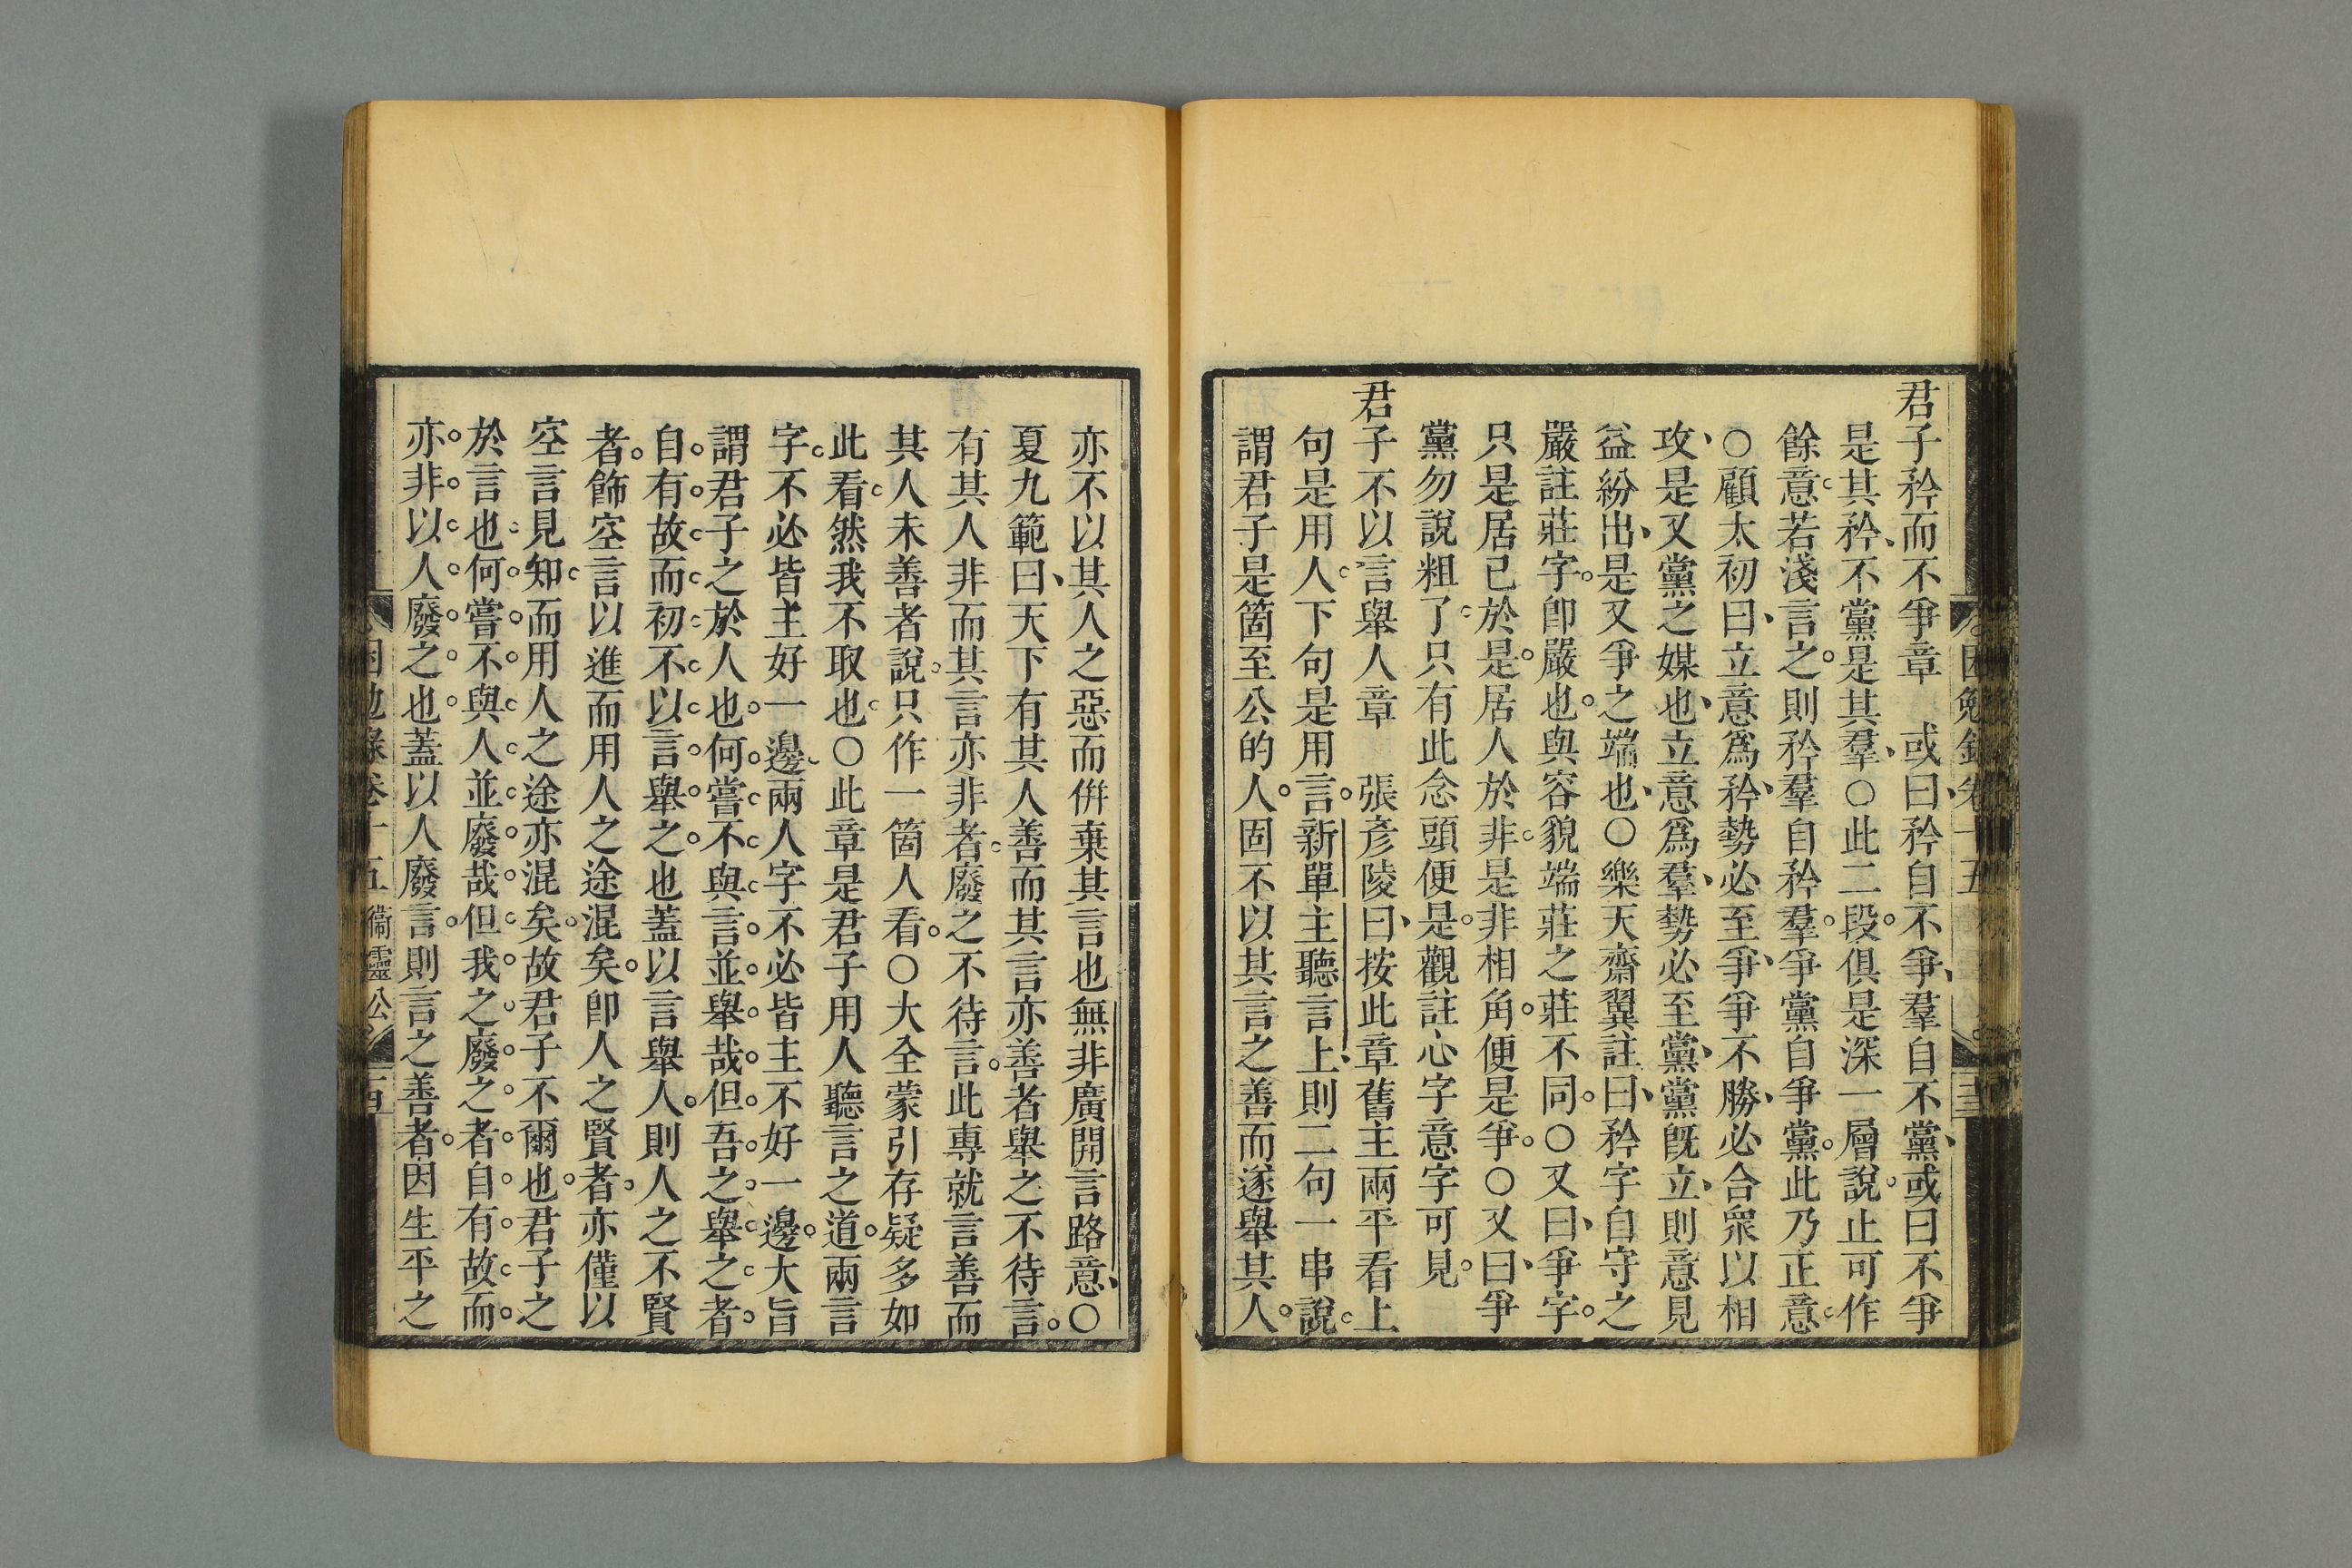 君子矜而不爭章　或曰矜自不爭羣自不黨或曰不爭
是其矜不黨是其羣○此二段俱是深一層說止可作
餘意若淺言之則矜羣自矜羣爭黨自爭黨此乃正意
○顧太初曰立意爲矜勢必至爭爭不勝必合衆以相
攻是又黨之媒也立意爲羣勢必至黨黨旣立則意見
益紛出是又爭之端也○樂天齋翼註曰矜字自守之
嚴註莊字卽嚴也與容貌端莊之莊不同○又曰爭字
只是居已於是居人於非是非相角便是爭○又曰爭
黨勿說粗了只有此念頭便是觀註心字意字可見
君子不以言舉人章　張彥陵曰按此章舊主兩平看上
句是用人下句是用言新單主聽言上則二句一串說
謂君子是箇至公的人固不以其言之善而遂舉其人
亦不以其人之惡而倂棄其言也無非廣開言路意○
夏九範曰天下有其人善而其言亦善者舉之不待言
有其人非而其言亦非者廢之不待言此專就言善而
其人未善者說只作一箇人看○大全蒙引存疑多如
此看然我不取也○此章是君子用人聽言之道兩言
字不必皆主好一邊兩人字不必皆主不好一邊大旨
謂君子之於人也何嘗不與言並舉哉但吾之舉之者
自有故而初不以言舉之也蓋以言舉人則人之不賢
者飾空言以進而用人之途混矣卽人之賢者亦僅以
空言見知而用人之途亦混矣故君子不爾也君子之
於言也何嘗不與人並廢哉但我之廢之者自有故而
亦非以人廢之也蓋以人廢言則言之善者因生平之
卷十五 衞靈公